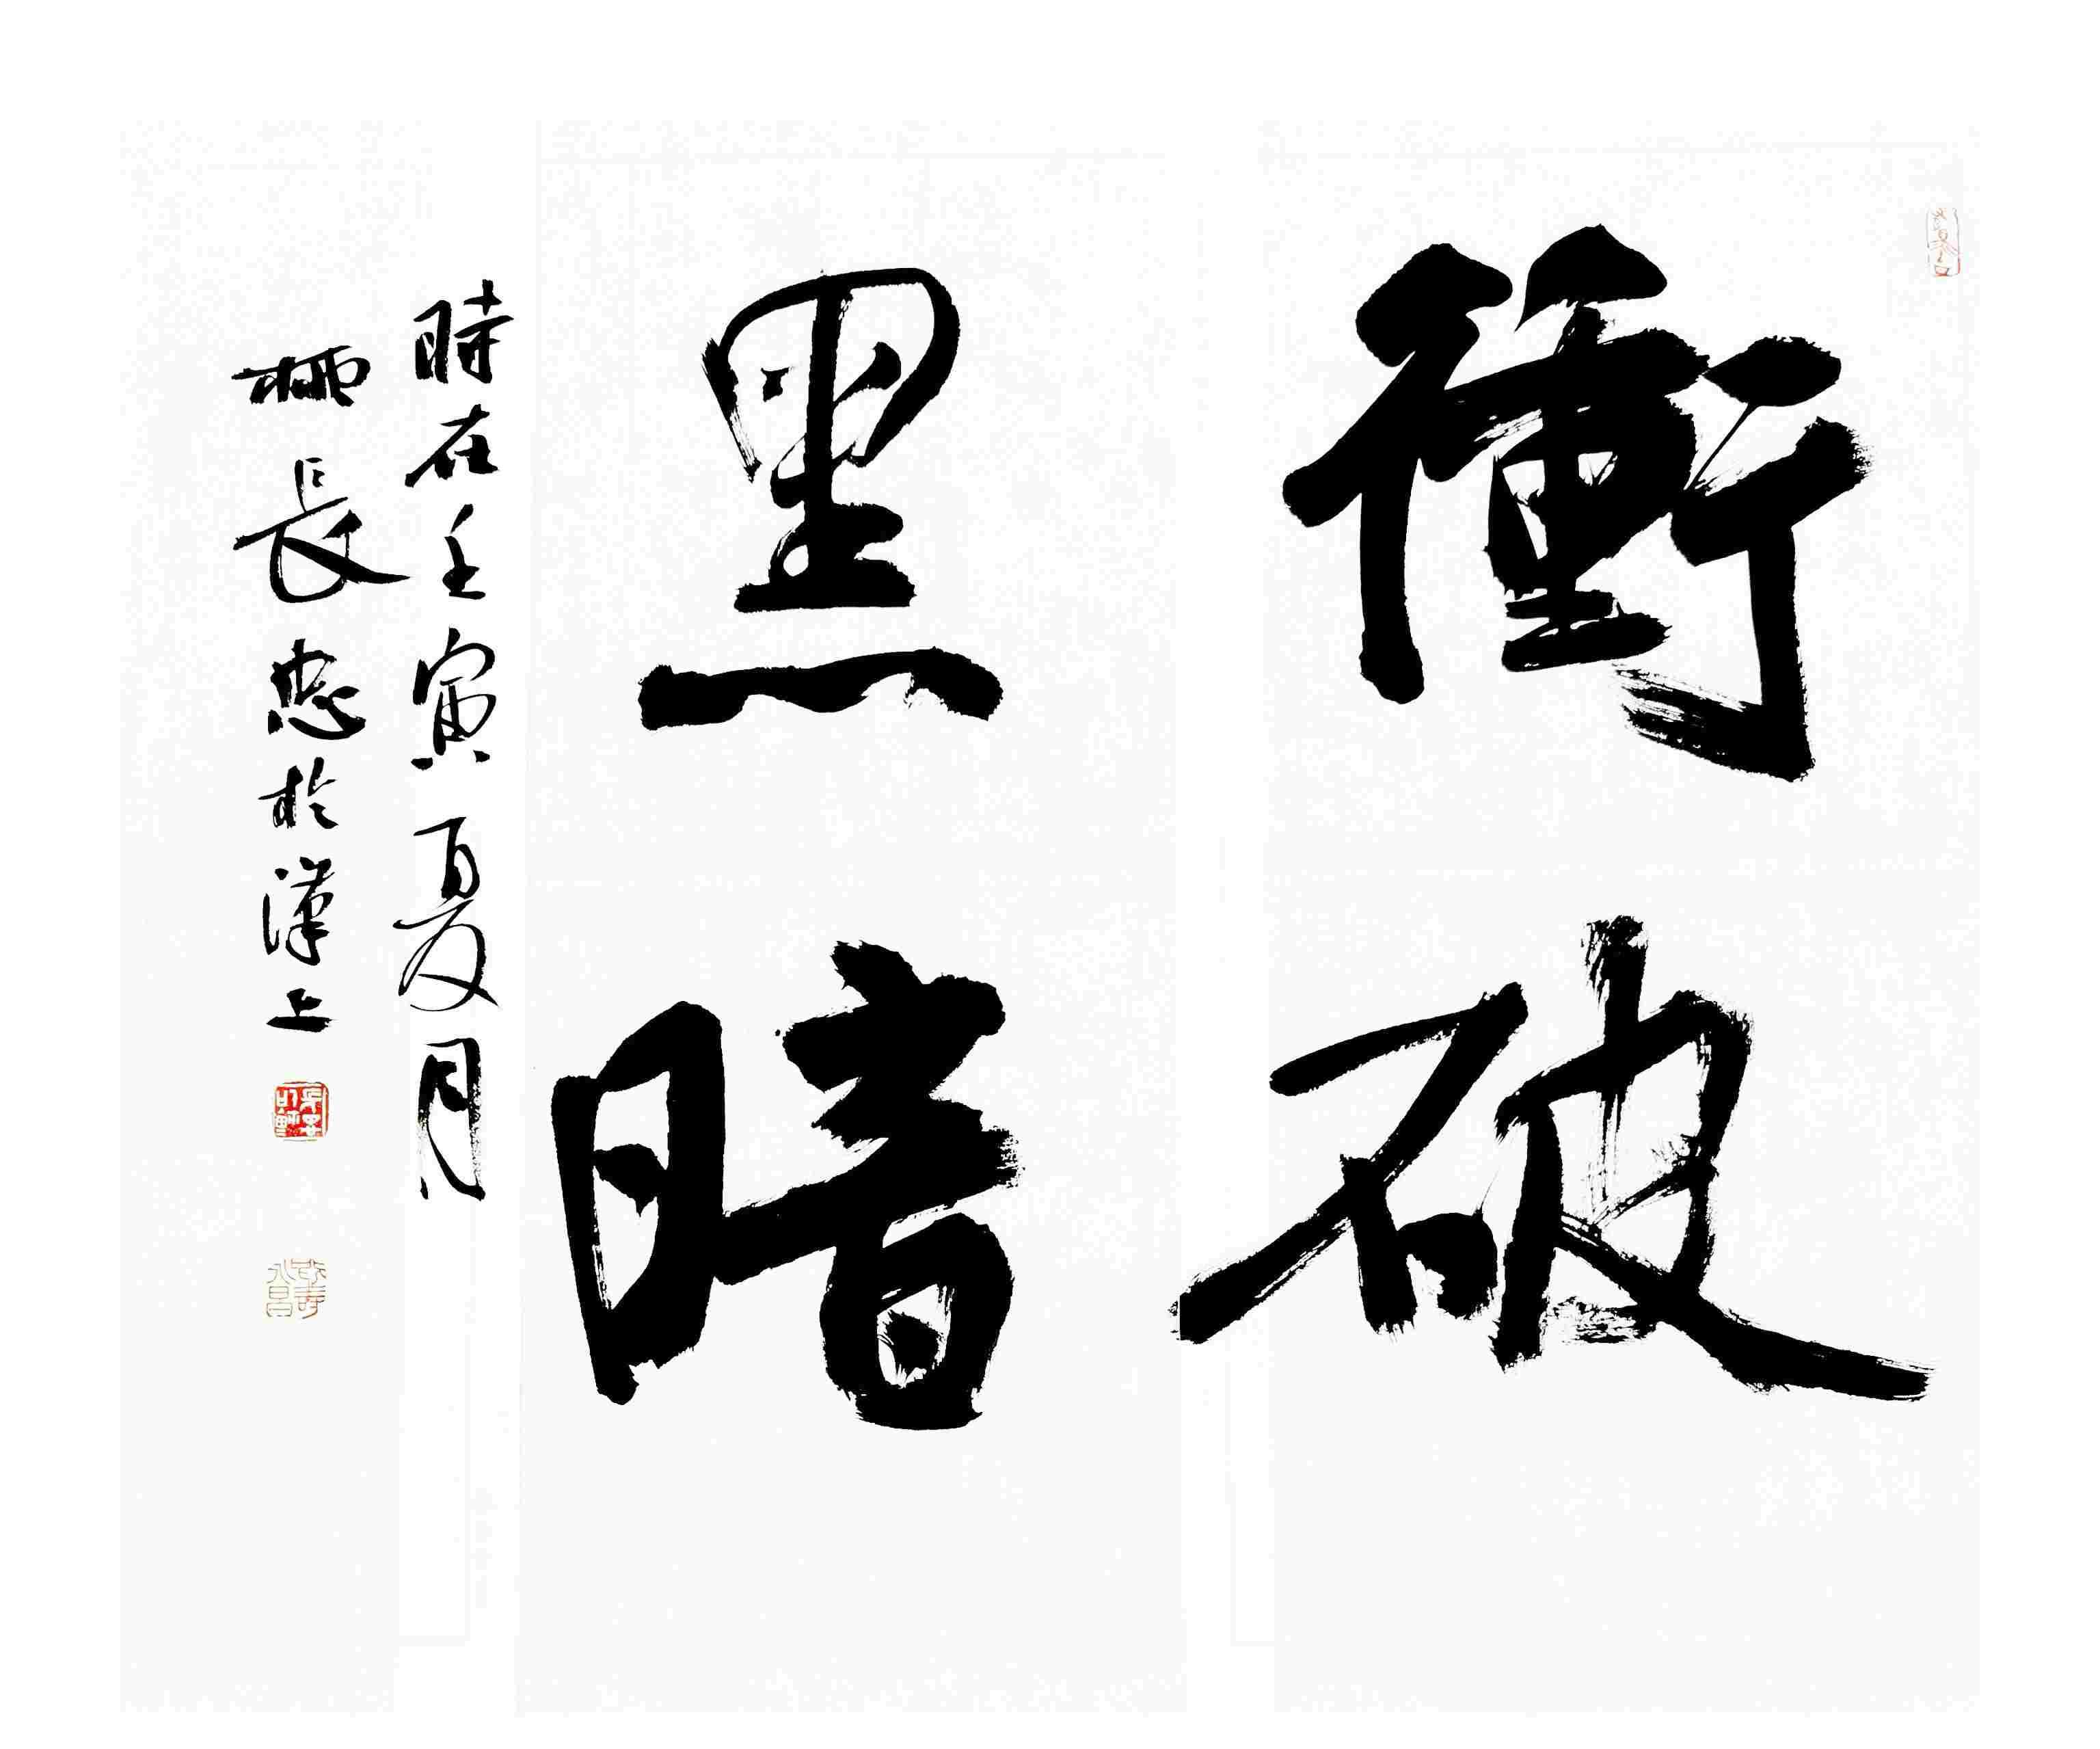 衝破
黑暗
時在壬寅夏月
柳長忠於漢上